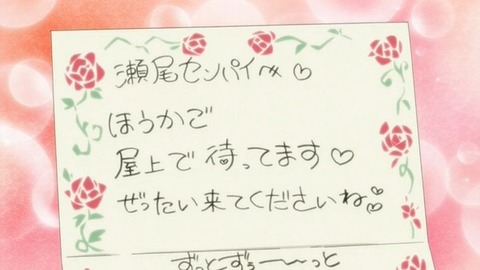 瀬尾センパイへ♡
ほうかご
屋上で待ってます♡
ぜったい来てくださいね♡
ずっとずぅ〜〜っと